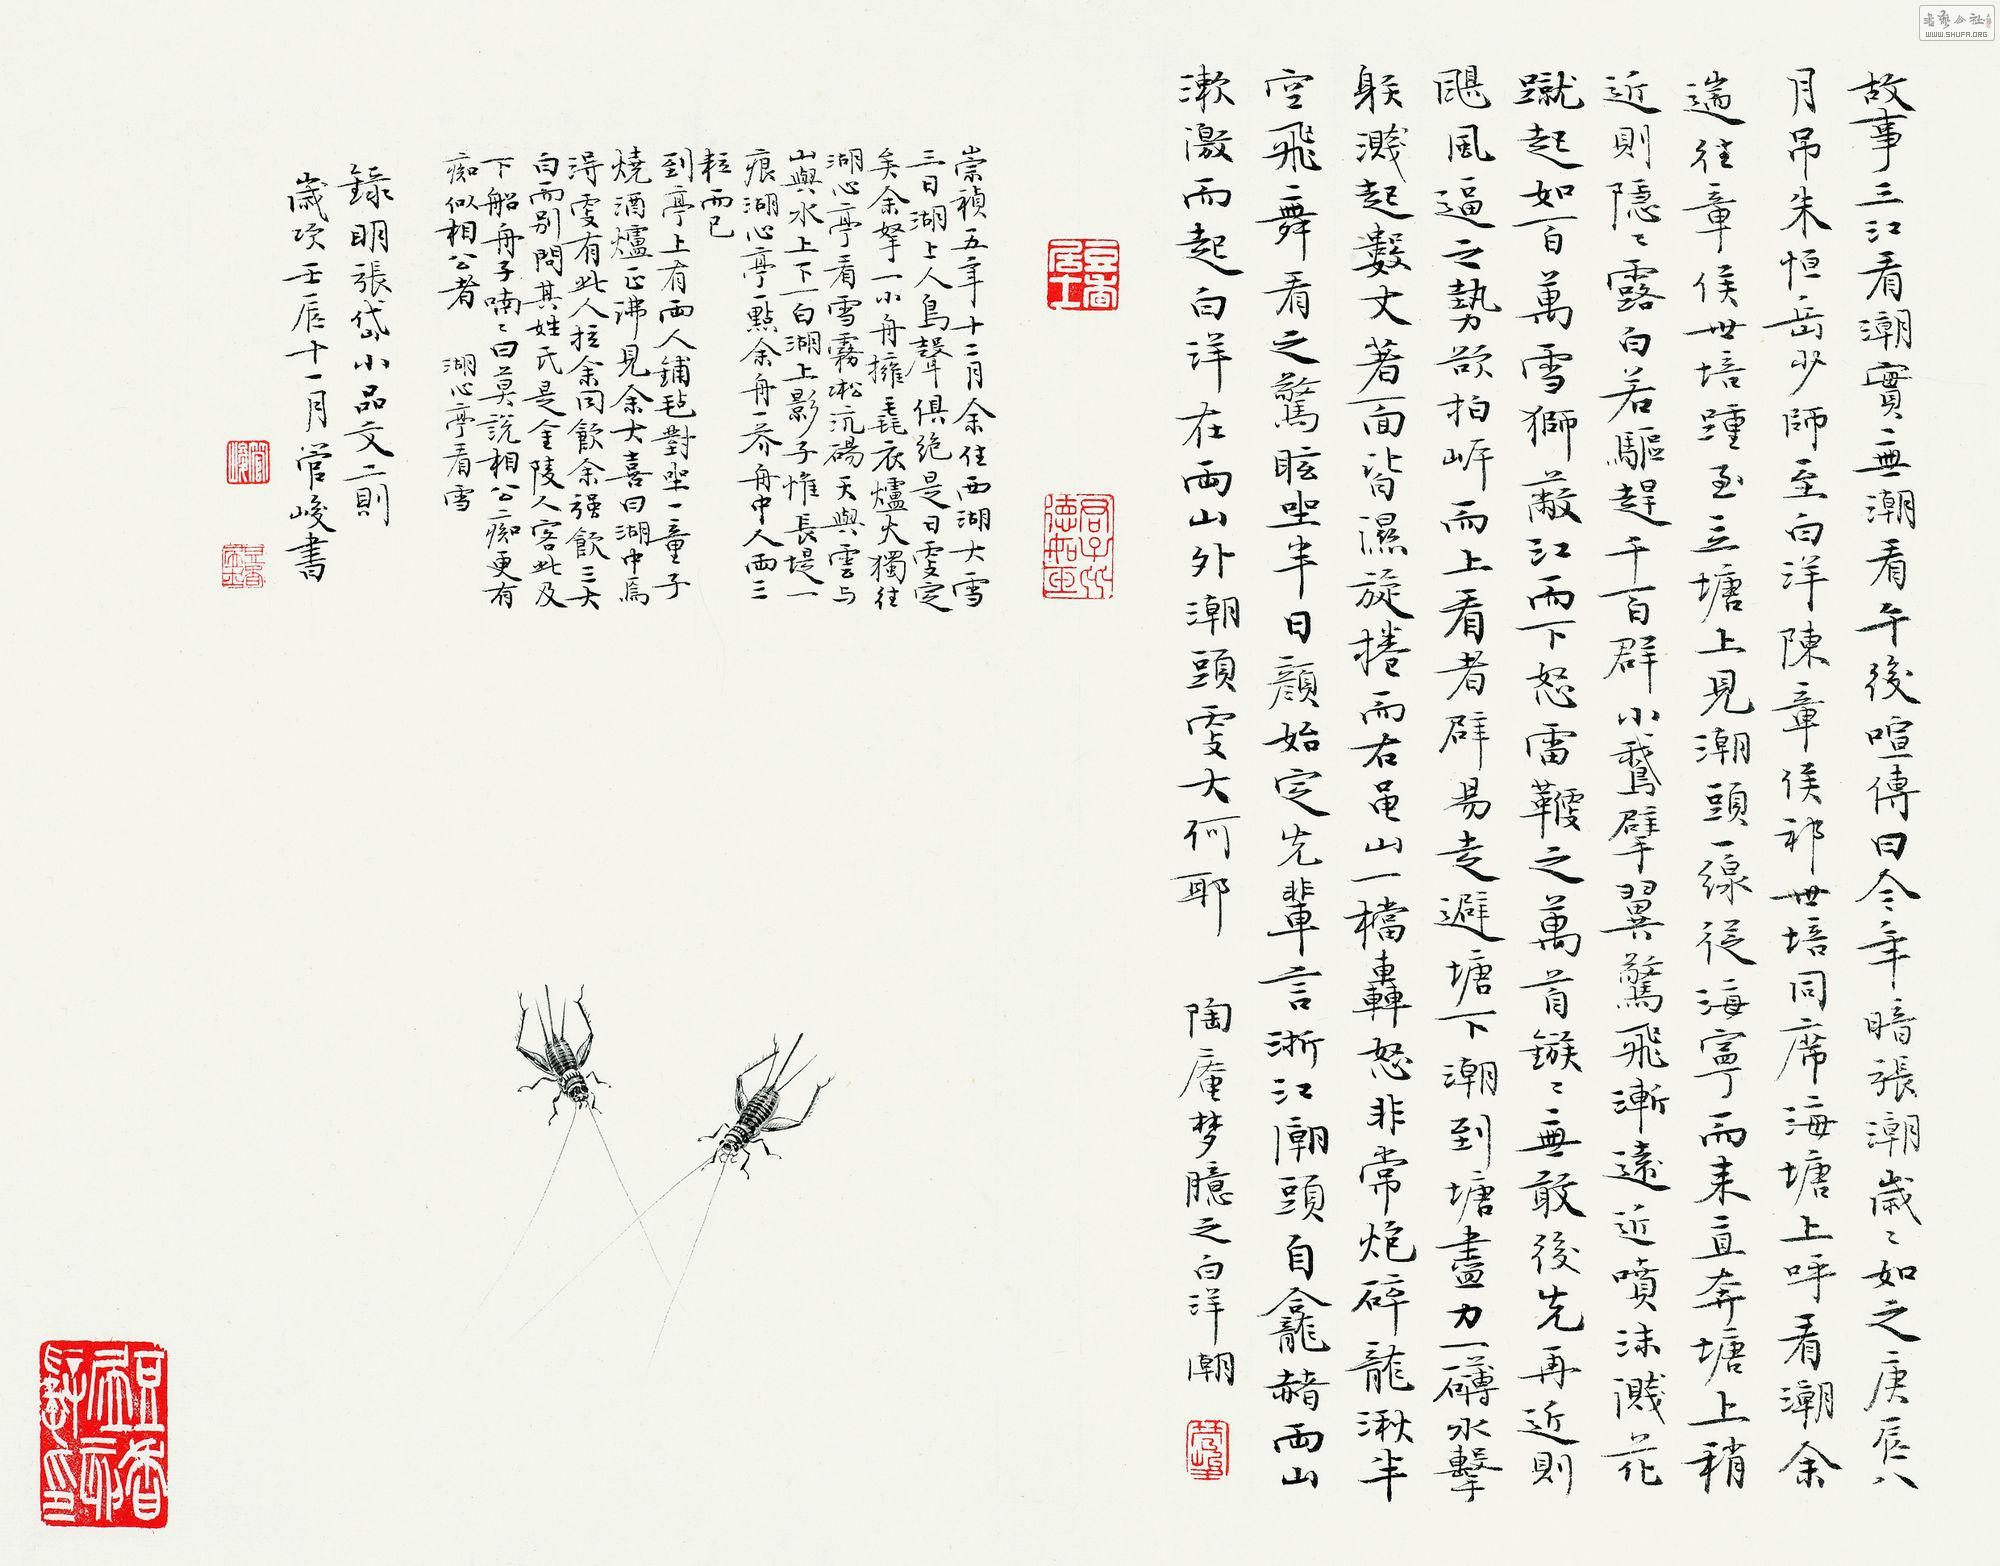 故事三江看潮實無潮看午後喧傳曰今年暗漲潮歲〻如之庚辰八
月吊朱恒岳少師至白洋陳章侯祁世培同席海塘上呼看潮余
遄往章侯世培踵至立塘上見潮頭一線從海寧而来直奔塘上稍
近則隱〻露白若驅趕千百群小鵝擘翼驚飛漸遠近噴沫濺花
蹴起如百萬雪獅蔽江而下怒雷鞭之萬首鏃〻無敢後先再近則
颶風逼之勢欲拍岸而上看者辟易走避塘下潮到塘盡力一礴水擊
躲濺起數丈著面皆濕旋捲而右黽山一檔轟怒非常炮碎龍湫半
空飛舞看之驚眩坐半日顏始定先輩言浙江潮頭自龕赭兩山
漱激而起白洋在兩山外潮頭更大何耶 陶庵梦臆之白洋潮
崇禎五年十二月余住西湖大雪
三日湖上人鳥聲俱絶是日更定
矣余拏一小舟擁毳衣爐火獨往
湖心亭看雪霧凇沆碭天與雲与
山與水上下一白湖上影子惟長堤一
痕湖心亭一點余舟一芥舟中人兩三
粒而已
到亭上有兩人鋪毡對坐一童子
燒酒爐正沸見余大喜曰湖中焉
得更有此人拉余同飲余强飲三大
白而别問其姓氏是金陵人客此及
下船舟子喃〻曰莫説相公痴更有
痴似相公者 湖心亭看雪
録明張岱小品文二則
歲次壬辰十一月管峻書
豆香居士
君子比德如玉
管峻
書藝公社
WWW.SHUFA.ORG